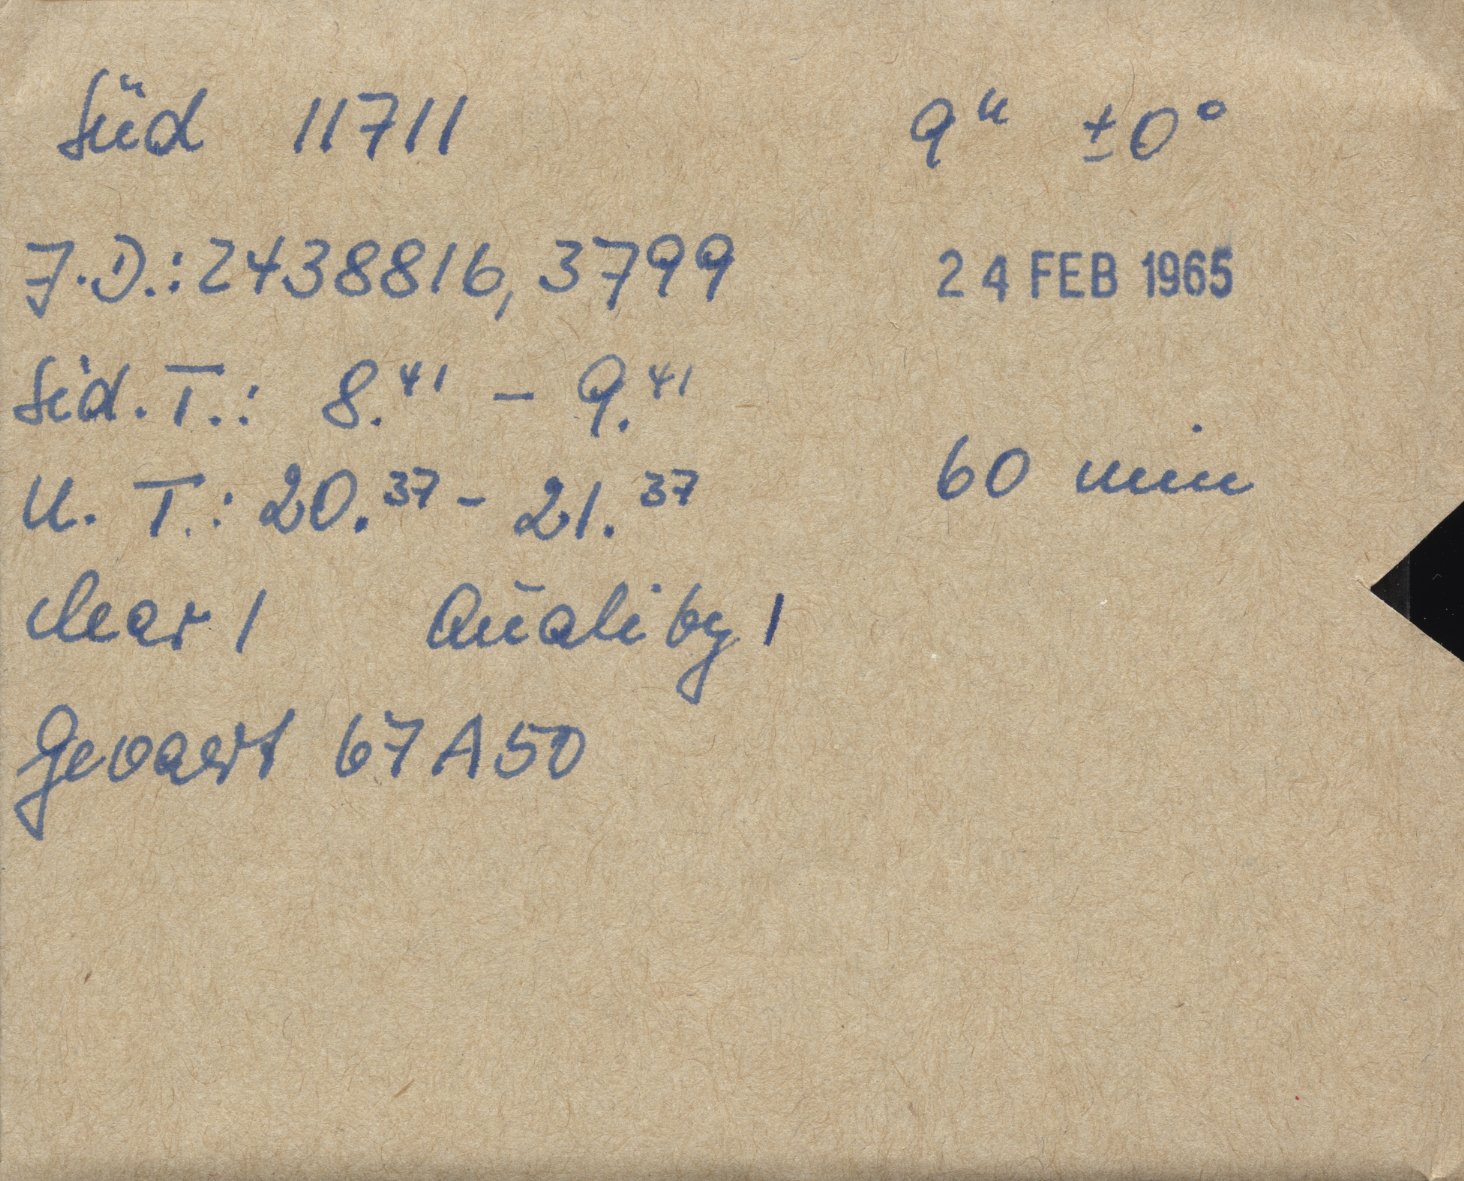 Süd 11711 9ʰ ±0°
J.D.: 2438816,3799 24 FEB 1965
Sid. T.: 8.⁴¹ – 9.⁴¹
U. T.: 20.³⁷ – 21.³⁷ 60 min
clear 1 Quality 1
Gevaert 67A50